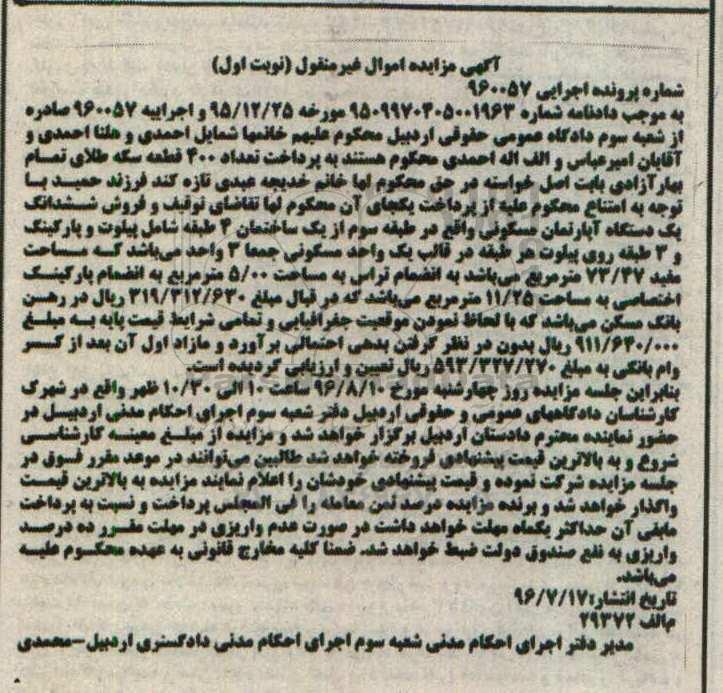 آگهی مزایده اموال غیرمنقول (نوبت اول)
شماره پرونده اجرایی ۹۶۰۰۵۷
به موجب دادنامه شماره ۹۵۰۹۹۷۰۴۰۵۰۰۱۹۶۳ مورخه ۹۵/۱۲/۲۵ و اجراییه ۹۶۰۰۵۷ صادره
از شعبه سوم دادگاه عمومی حقوقی اردبیل محکوم علیهم خانمها شمایل احمدی و هلنا احمدی و
آقایان امیرعباس و الف اله احمدی محکوم هستند به پرداخت تعداد ۴۰۰ قطعه سکه طلای تمام
بهارآزادی بابت اصل خواسته در حق محکوم لها خانم خدیجه عبدی تازه کند فرزند حمید با
توجه به امتناع محکوم علیه از پرداخت یکجای آن محکوم لها تقاضای توقیف و فروش ششدانگ
یک دستگاه آپارتمان مسکونی واقع در طبقه سوم از یک ساختمان ۴ طبقه شامل پیلوت و پارکینگ
و ۳ طبقه روی پیلوت هر طبقه در قالب یک واحد مسکونی جمعا ۳ واحد می‌باشد که مساحت
مفید ۷۳/۴۷ مترمربع می‌باشد به انضمام تراس به مساحت ۵/۰۰ مترمربع به انضمام پارکینگ
اختصاصی به مساحت ۱۱/۲۵ مترمربع می‌باشد که در قبال مبلغ ۳۱۹/۳۱۲/۶۳۰ ریال در رهن
بانک مسکن می‌باشد که با لحاظ نمودن موقعیت جغرافیایی و تمامی شرایط قیمت پایه به مبلغ
۹۱۱/۶۴۰/۰۰۰ ریال بدون در نظر گرفتن بدهی احتمالی برآورد و مازاد اول آن بعد از کسر
وام بانکی به مبلغ ۵۹۳/۳۲۷/۲۷۰ ریال تعیین و ارزیابی گردیده است.
بنابراین جلسه مزایده روز چهارشنبه مورخ ۹۶/۸/۱۰ ساعت ۱۰ الی ۱۰/۳۰ ظهر واقع در شهرک
کارشناسان دادگاههای عمومی و حقوقی اردبیل دفتر شعبه سوم اجرای احکام مدنی اردبیل در
حضور نماینده محترم دادستان اردبیل برگزار خواهد شد و مزایده از مبلغ معینه کارشناسی
شروع و به بالاترین قیمت پیشنهادی فروخته خواهد شد طالبین می‌توانند در موعد مقرر فوق در
جلسه مزایده شرکت نموده و قیمت پیشنهادی خودشان را اعلام نمایند مزایده به بالاترین قیمت
واگذار خواهد شد و برنده مزایده درصد ثمن معامله را فی المجلس پرداخت و نسبت به پرداخت
مابقی آن حداکثر یکماه مهلت خواهد داشت در صورت عدم واریزی در مهلت مقرر ده درصد
واریزی به نفع صندوق دولت ضبط خواهد شد. ضمنا کلیه مخارج قانونی به عهده محکوم علیه
می‌باشد.
تاریخ انتشار: ۹۶/۷/۱۷
م/الف ۲۹۳۷۲
مدیر دفتر اجرای احکام مدنی شعبه سوم اجرای احکام مدنی دادگستری اردبیل-محمدی